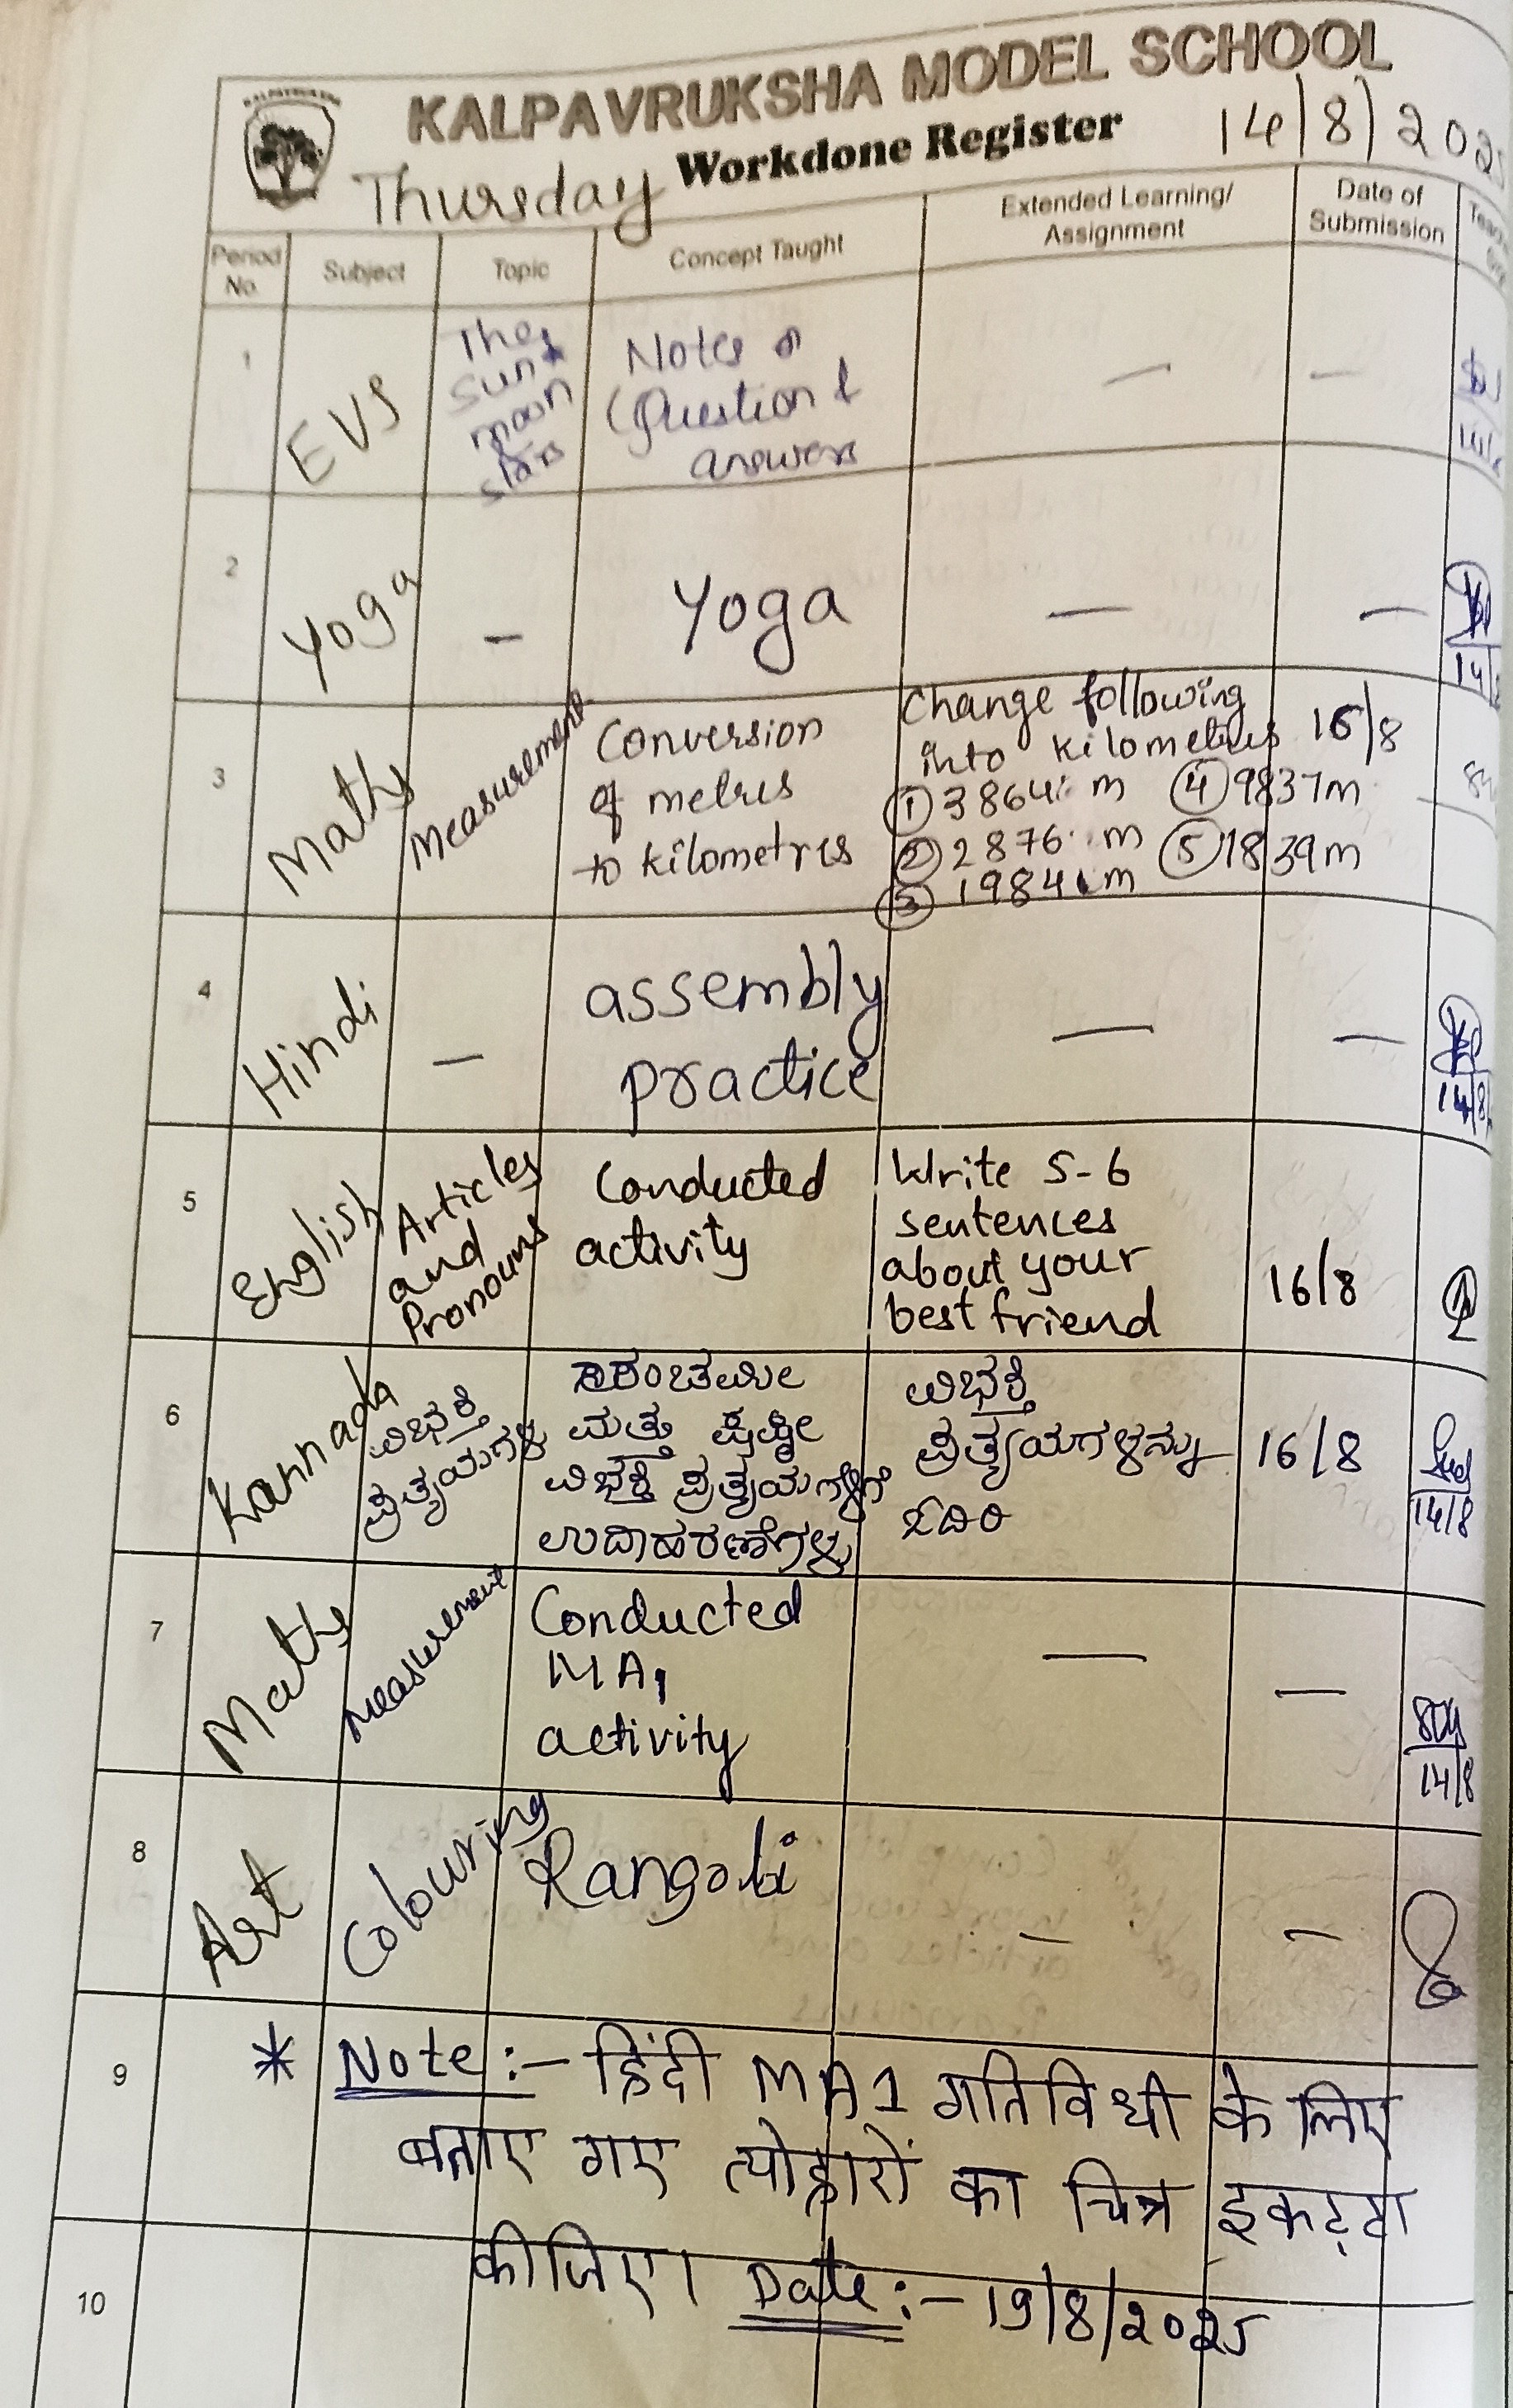 KALPAVRUKSHA
KALPAVRUKSHA MODEL SCHOOL
Workdone Register
Thursday
14/8/202
Period No.
Subject
Topic
Concept Taught
Extended Learning/
Assignment
Date of
Submission
1
EVS
The
sun
moon
stars
Notes
Question &
answers
—
—
2
Yoga
—
Yoga
—
—
14/
3
Maths
Measurement
Conversion
of metres
to kilometres
Change following
into kilometres
① 3864 m ④ 9837m
② 2876 m ⑤ 1839m
③ 1984 m
16/8
4
Hindi
—
assembly
practice
—
—
14/8
5
English
Articles
and
Pronouns
Conducted
activity
Write 5-6
sentences
about your
best friend
16/8
6
Kannada
ವಿಭಕ್ತಿ
ಪ್ರತ್ಯಯಗಳು
ಮತ್ತು ಷಷ್ಠೀ
ವಿಭಕ್ತಿ ಪ್ರತ್ಯಯಗಳಿಗೆ
ಉದಾಹರಣೆಗಳು
ವಿಭಕ್ತಿ
ಪ್ರತ್ಯಯಗಳನ್ನು
ಓದಿರಿ
16/8
14/8
7
Maths
Measurement
Conducted
MA1
activity
—
—
14/8
8
Art
Colouring
Rangoli
—
—
9
* Note:- हिंदी MA1 गतिविधी के लिए
बताए गए त्योहारों का चित्र इकट्ठा
कीजिए। Date:- 19/8/2025
10